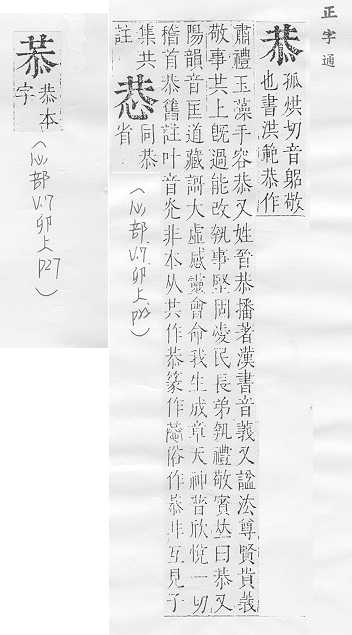 正字通
恭 孤烘切音躬敬
也書洪範恭作
肅禮玉藻手容恭又姓晉恭播著漢書音義又謚法尊賢貴義
敬事共上旣過能改執事堅固愛民長弟執禮敬賓𠀤曰恭又
陽韻音匡道藏謌大虛感靈會命我生成章天神皆欣悅一切
稽首恭舊註叶音光非本从共作恭篆作 俗作 非互見子
集共
註 同恭
省
(心部
V.7
卯上
p22)
恭本
字
(心部
V.7
卯上
p27)